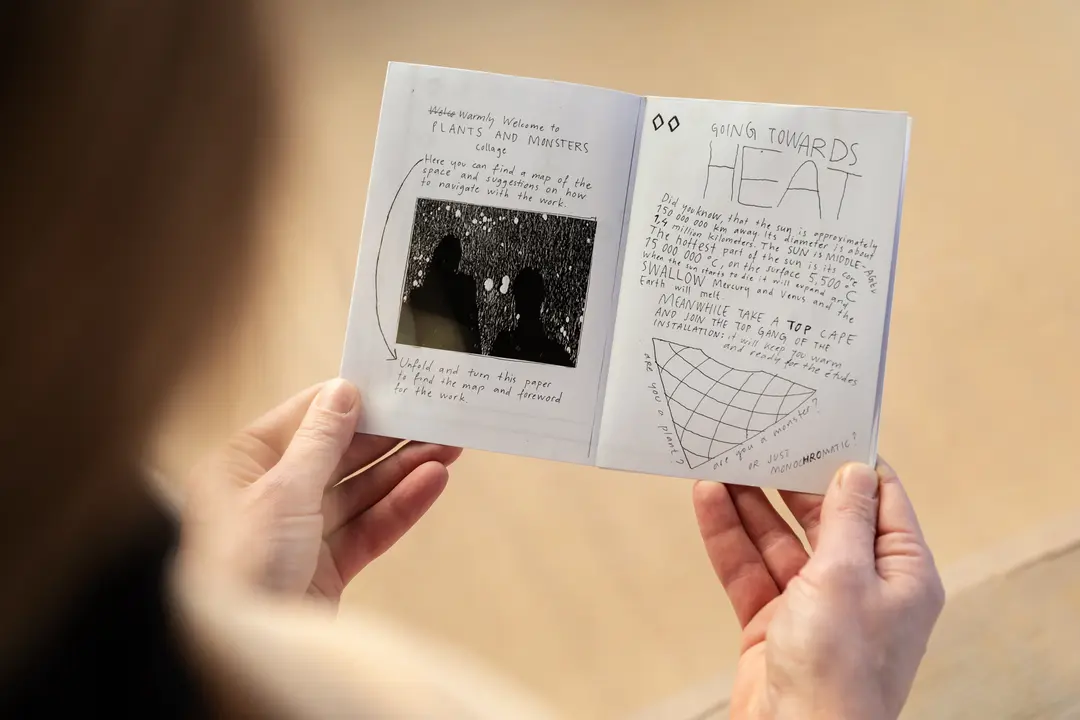 Warmly Welcome to
PLANTS AND MONSTERS
collage
Here you can find a map of the
space and suggestions on how
to navigate with the work.
Unfold and turn this paper
to find the map and foreword
for the work.
GOING TOWARDS
HEAT
Did you know, that the sun is approximately
150 000 000 km away. Its diameter is about
1,4 million kilometers. The SUN is MIDDLE-AGED.
The hottest part of the sun is its core
15 000 000 °C, on the surface 5,500 °C
When the sun starts to die it will expand and
SWALLOW Mercury and Venus. and the
Earth will melt.
MEANWHILE TAKE A TOP CAPE
AND JOIN THE TOP GANG OF THE
INSTALLATION: it will keep you warm
and ready for the études
are you a plant?
are you a monster?
OR JUST
MONOCHROMATIC?